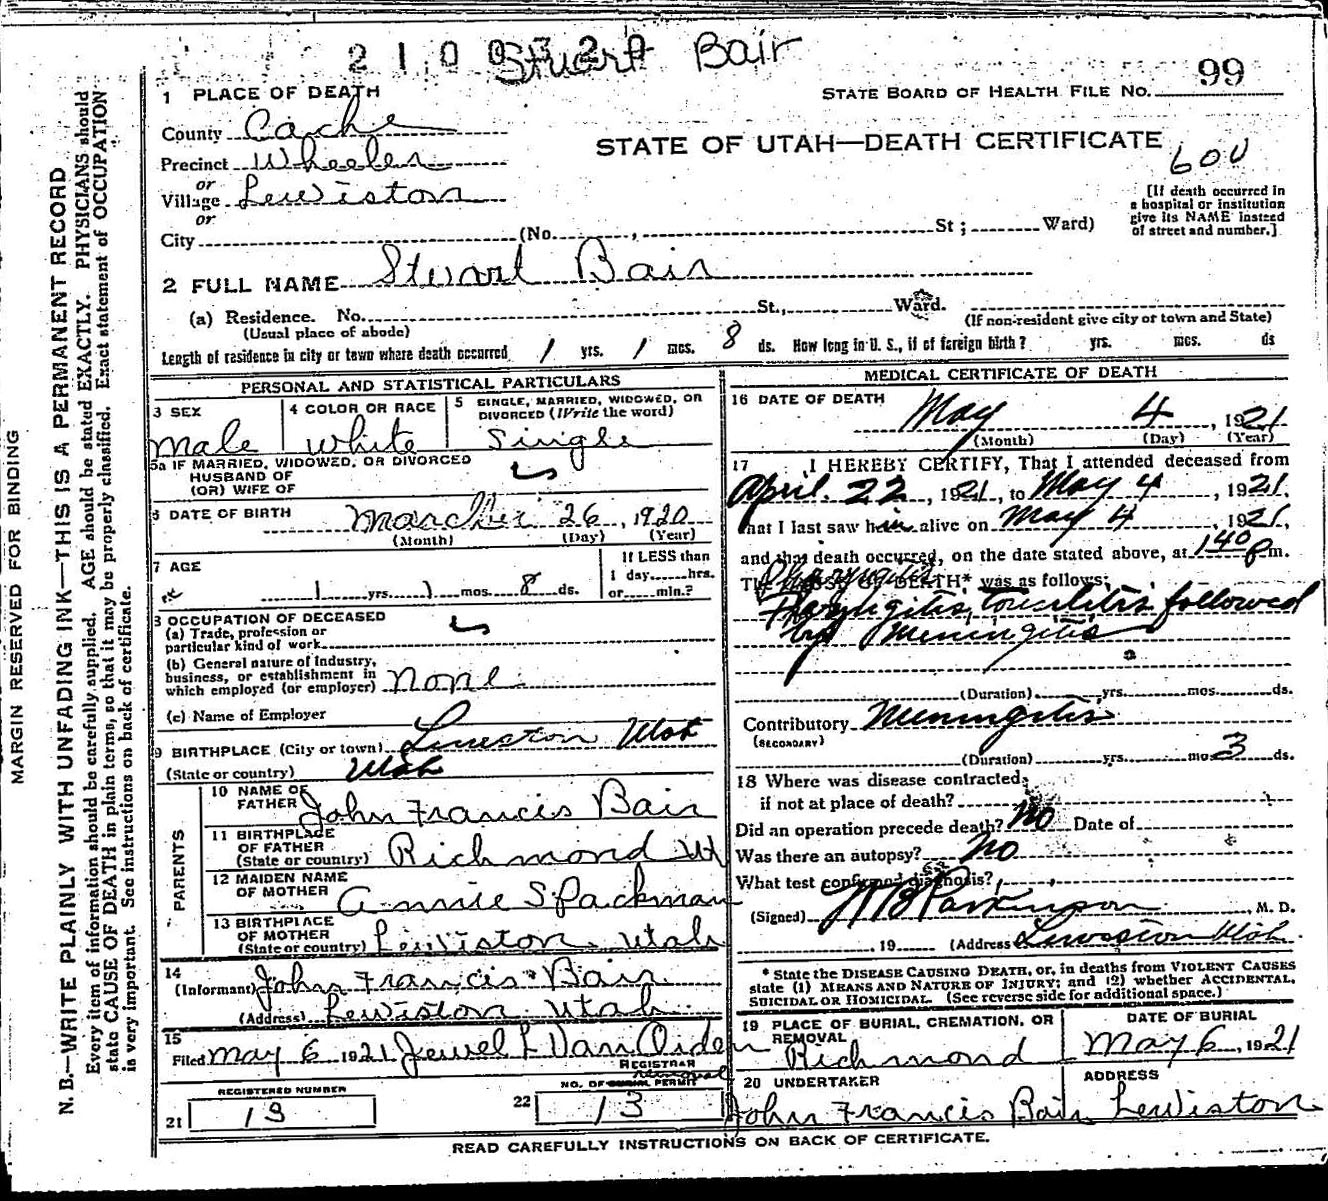 2 1 0 0 3 2 0 Stuart Bair
99
1 PLACE OF DEATH
STATE BOARD OF HEALTH FILE NO.
County Cache
STATE OF UTAH—DEATH CERTIFICATE
600
Precinct Wheeler
or
Village Lewiston
or
[If death occurred in
a hospital or institution
give its NAME instead
of street and number.]
City (No. , St; Ward)
2 FULL NAME Stuart Bair
(a) Residence. No. St., Ward.
(Usual place of abode)
(If non-resident give city or town and State)
Length of residence in city or town where death occurred 1 yrs. 1 mos. 8 ds. How long in U. S., if of foreign birth? yrs. mos. ds
PERSONAL AND STATISTICAL PARTICULARS
3 SEX
Male
4 COLOR OR RACE
White
5 SINGLE, MARRIED, WIDOWED, OR
DIVORCED (Write the word)
Single
5a IF MARRIED, WIDOWED, OR DIVORCED
HUSBAND OF
(OR) WIFE OF
6 DATE OF BIRTH March 26, 1920
(Month) (Day) (Year)
7 AGE
1 yrs. 1 mos. 8 ds.
If LESS than
1 day......hrs.
or......min.?
8 OCCUPATION OF DECEASED
(a) Trade, profession or
particular kind of work
(b) General nature of Industry,
business, or establishment in
which employed (or employer) None
(c) Name of Employer
9 BIRTHPLACE (City or town) Lewiston Utah
(State or country) Utah
PARENTS
10 NAME OF
FATHER John Francis Bair
11 BIRTHPLACE
OF FATHER
(State or country) Richmond Ut
12 MAIDEN NAME
OF MOTHER Annie Spackman
13 BIRTHPLACE
OF MOTHER
(State or country) Lewiston Utah
14
(Informant) John Francis Bair
(Address) Lewiston Utah
15
Filed May 6 1921 Jewel L Van Orden
REGISTRAR
REGISTERED NUMBER
21 13
removal
NO. OF BURIAL PERMIT
22 13
MEDICAL CERTIFICATE OF DEATH
16 DATE OF DEATH
May 4, 1921
(Month) (Day) (Year)
17 I HEREBY CERTIFY, That I attended deceased from
April 22, 1921, to May 4, 1921,
that I last saw him alive on May 4, 1921,
and that death occurred, on the date stated above, at 1 40 P m.
Pharyngitis
The CAUSE OF DEATH* was as follows:
Pharyngitis, tonsilitis followed
by Meningitis
(Duration) yrs. mos. ds.
Contributory Meningitis
(SECONDARY)
(Duration) yrs. mos 3 ds.
18 Where was disease contracted,
if not at place of death?
Did an operation precede death? No Date of
Was there an autopsy? No
What test confirmed diagnosis?
(Signed) W B Parkinson, M. D.
19 (Address) Lewiston Utah
* State the DISEASE CAUSING DEATH, or, in deaths from VIOLENT CAUSES
state (1) MEANS AND NATURE OF INJURY; and (2) whether ACCIDENTAL,
SUICIDAL OR HOMICIDAL. (See reverse side for additional space.)
19 PLACE OF BURIAL, CREMATION, OR
REMOVAL
Richmond
DATE OF BURIAL
May 6, 1921
20 UNDERTAKER
John Francis Bair
ADDRESS
Lewiston
READ CAREFULLY INSTRUCTIONS ON BACK OF CERTIFICATE.
MARGIN RESERVED FOR BINDING
N. B.—WRITE PLAINLY WITH UNFADING INK—THIS IS A PERMANENT RECORD
Every item of information should be carefully supplied. AGE should be stated EXACTLY. PHYSICIANS should
state CAUSE OF DEATH in plain terms, so that it may be properly classified. Exact statement of OCCUPATION
is very important. See instructions on back of certificate.